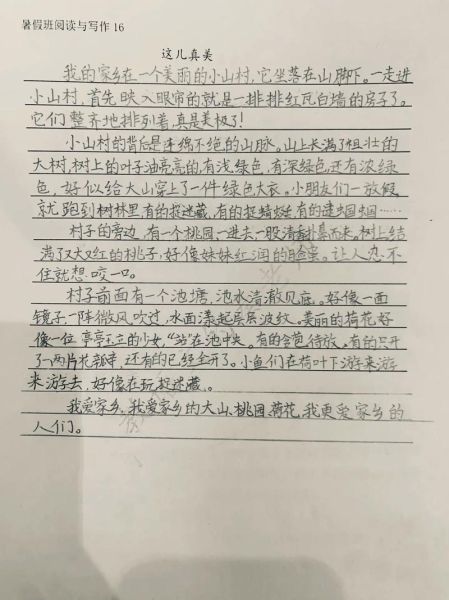 暑假班阅读与写作 16
这儿真美
我的家乡在一个美丽的小山村,它坐落在山脚下。一走进
小山村,首先映入眼帘的就是一排排红瓦白墙的房子了。
它们整齐地排列着,真是美极了!
小山村的背后是连绵不绝的山脉。山上长满了粗壮的
大树,树上的叶子油亮亮的有浅绿色,有深绿色,还有浓绿
色,好似给大山穿上了一件绿色大衣。小朋友们一放假,
就跑到树林里,有的捉迷藏,有的捉蜻蜓,有的逮蝈蝈……
村子的旁边,有一个桃园,一进去,一股清香扑鼻而来。树上结
满了又大又红的桃子,好像妹妹红润的脸蛋。让人忍不
住就想咬一口。
村子前面有一个池塘,池水清澈见底。好像一面
镜子,一阵微风吹过,水面荡起层层波纹。美丽的荷花好
像一位亭亭玉立的少女,“站”在池中央。有的含苞待放。有的只开
了两片花瓣,还有的已经全开了。小鱼们在荷叶下游来游
来游去,好像在玩捉迷藏。
我爱家乡,我爱家乡的大山、桃园、荷花,我更爱家乡的
人们。